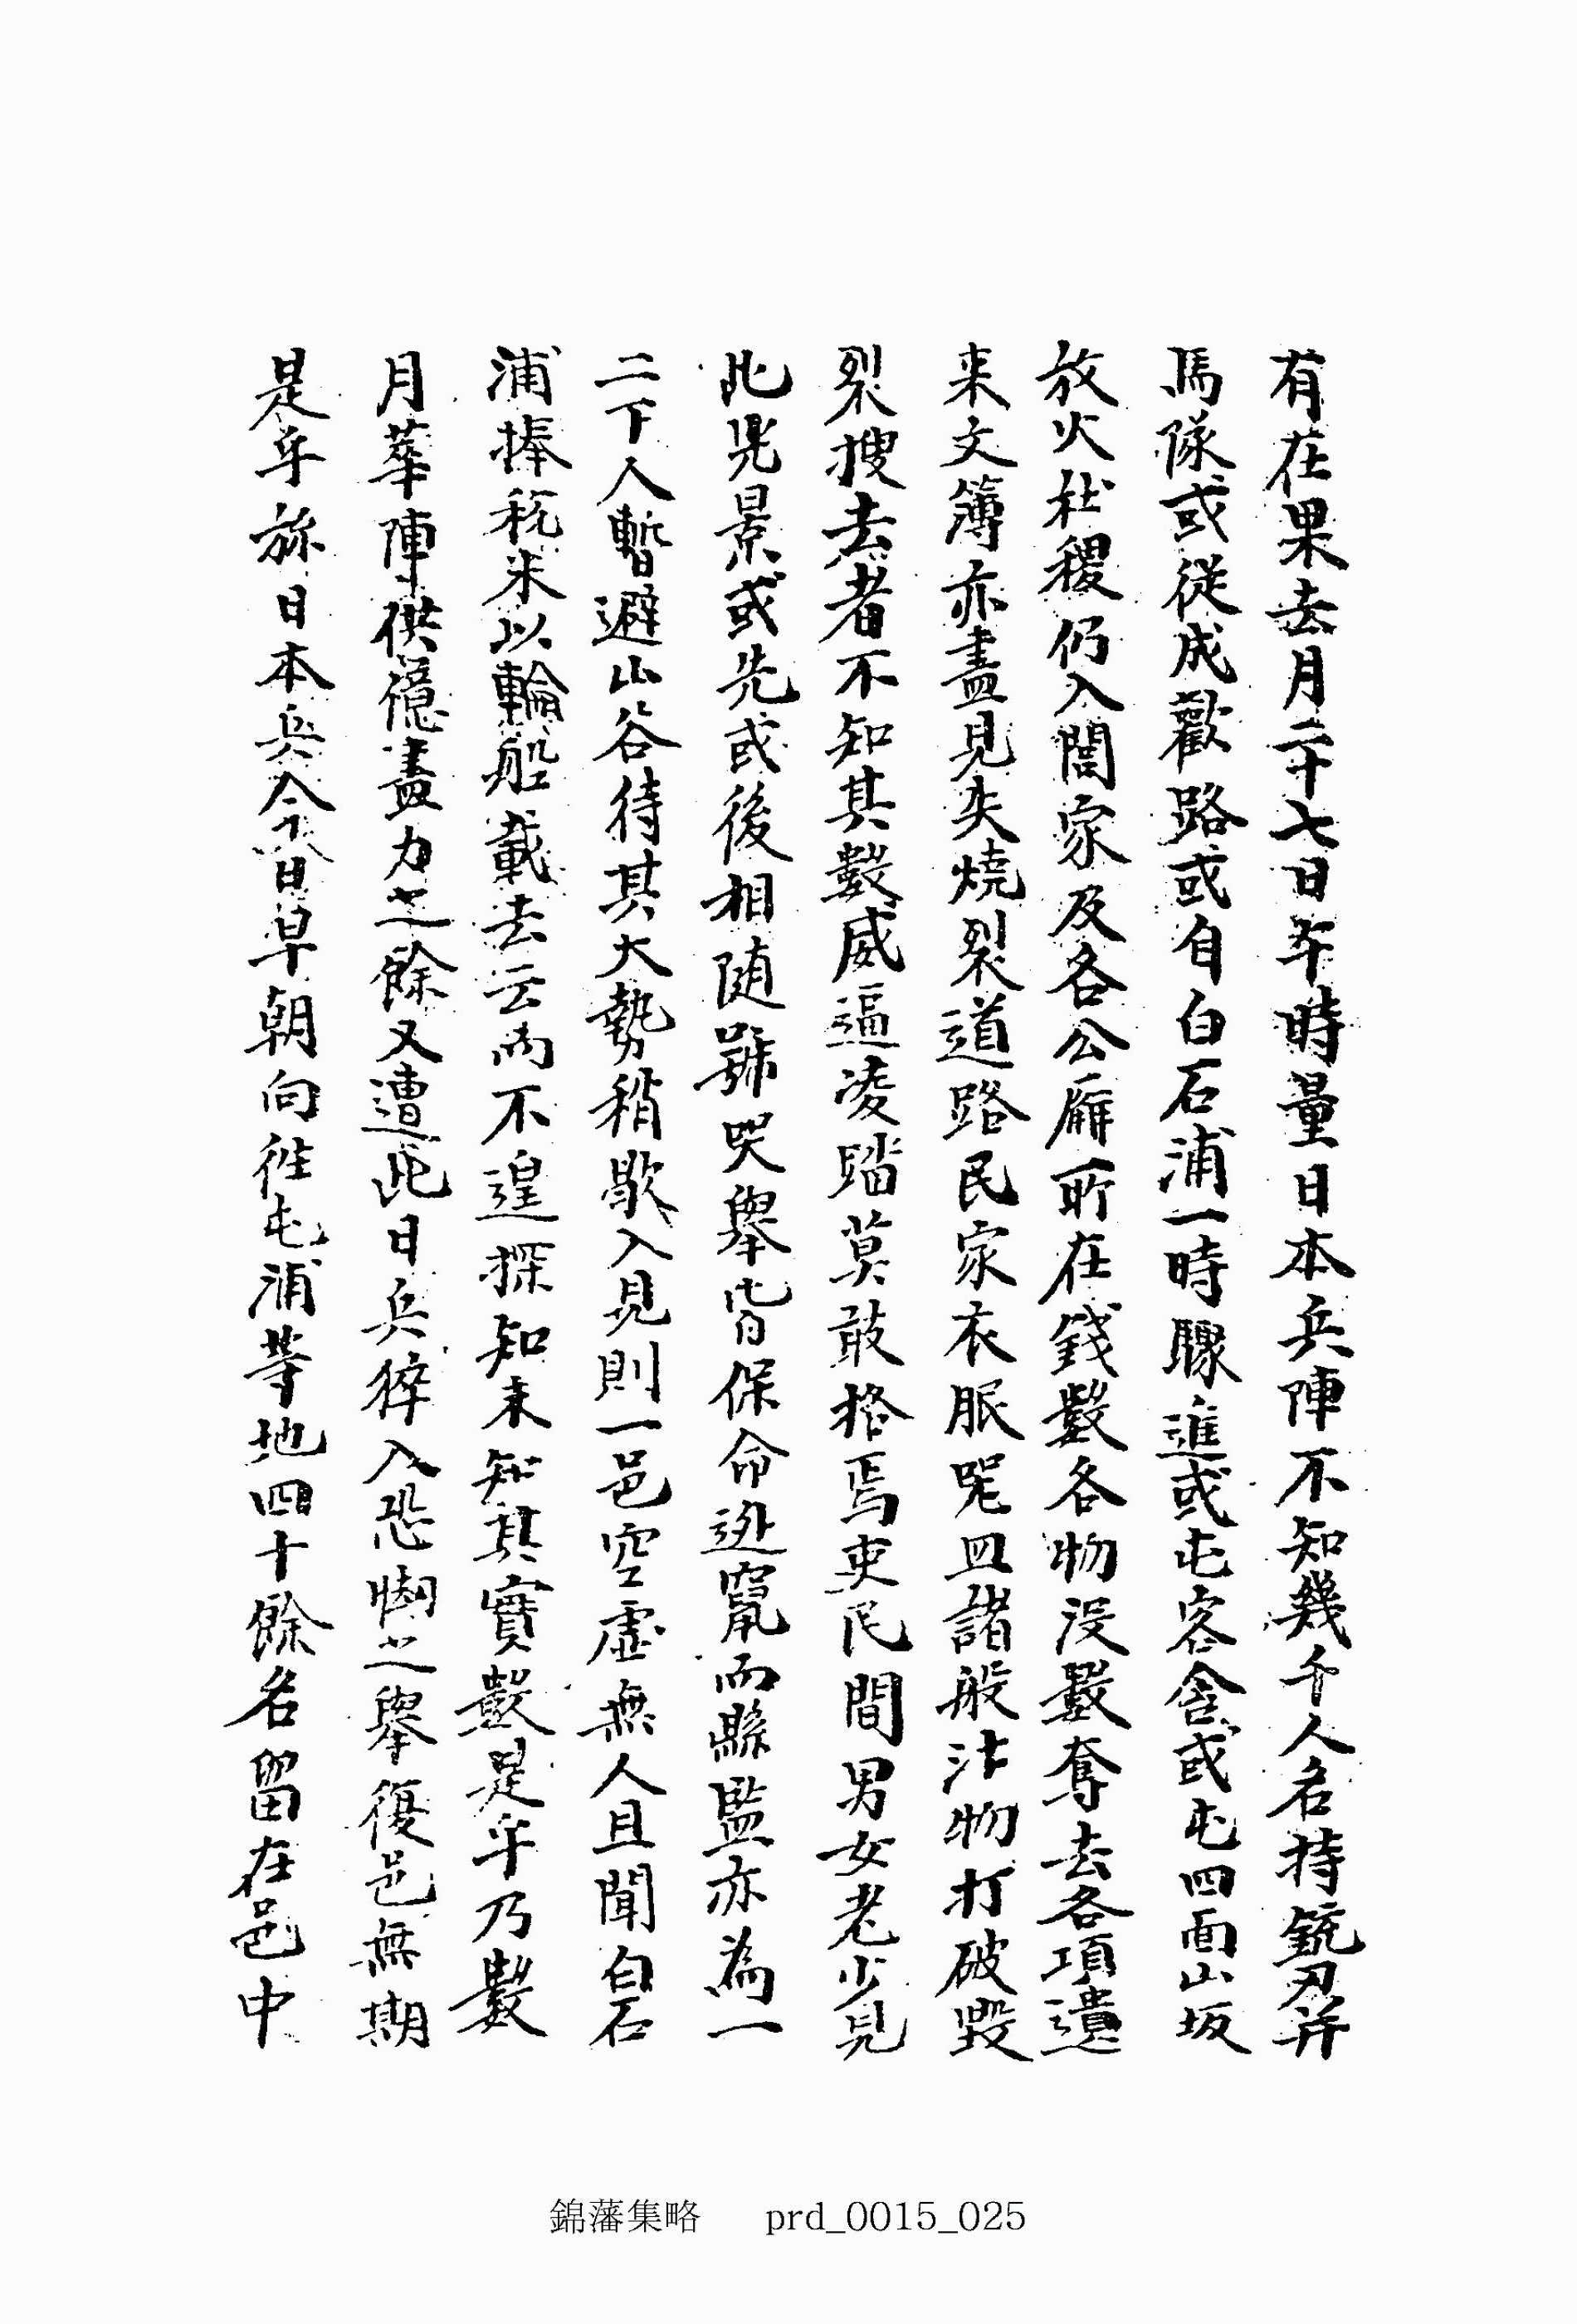 有在果去月二十七日午時量日本兵陣不知幾千人名持銃刃幷
馬隊或從成歡路或自白石浦一時驟進或屯客舍或屯四面山坂
放火社稷仍入閭家及各公廨所在錢數各物沒數奪去各項遺
來文簿亦盡見失燒裂道路民家衣服呢皿諸般汁物打破毀
裂搜去者不知其數威逼凌踏莫敢挌焉吏民間男女老少見
此光景或先或後相随號哭擧皆保命逃竄而縣監亦爲一
二下人暫避山谷待其大勢稍歇入見則一邑空虛無人且聞白石
浦捧稅米以輪船載去云而不遑探知未知其實數是乎乃數
月華陣供億盡力之餘又遭此日兵猝入恐惻之擧復邑無期
是乎旀日本兵今日早朝向徃屯浦等地四十餘名留在邑中
錦藩集略 prd_0015_025